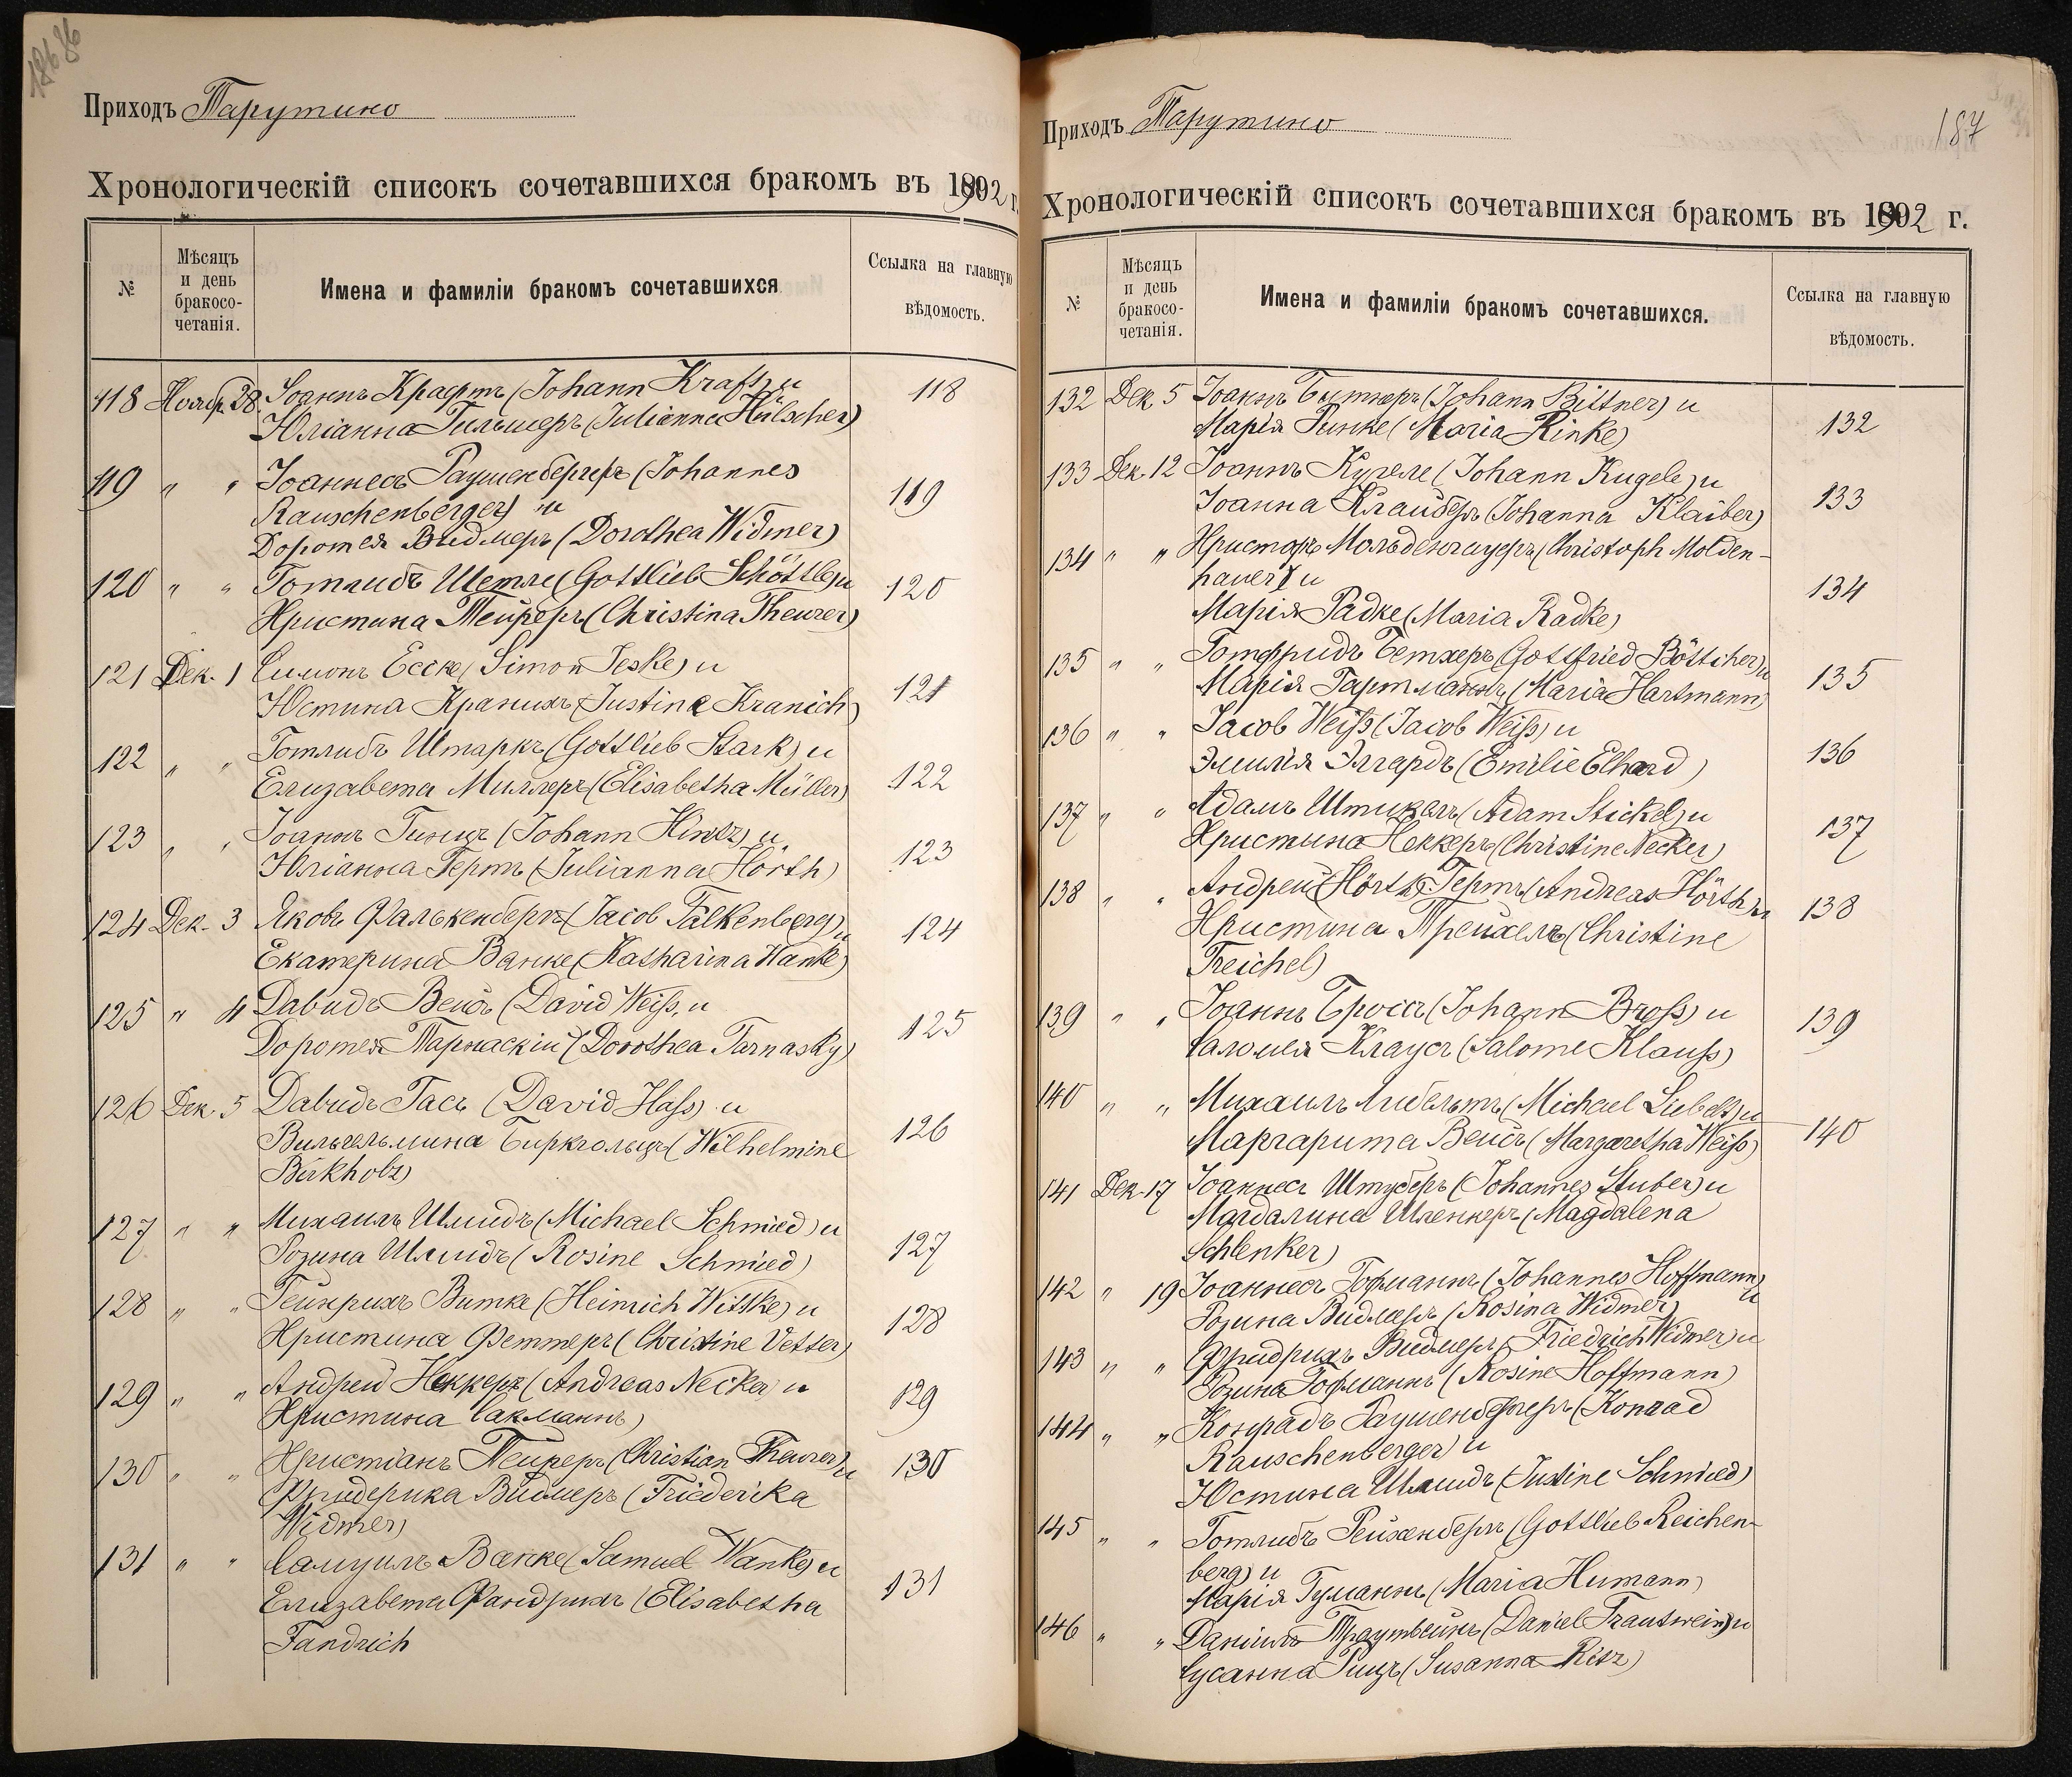 Приходъ Тарутино
Хронологическій списокъ сочетавшихся бракомъ въ 1892 г.
№
Мѣсяцъ
и день
бракосо-
четанія.
Имена и фамиліи бракомъ сочетавшихся
Ссылка на главную
вѣдомость.
118 Ноябр. 28. Іоаннъ Крафтъ (Johann Kraft) и 118
Юліанна Гильшеръ (Julianna Hülscher)
119 " " Іоаннесъ Раушенбергеръ (Johannes 119
Rauschenberger) и
Доротея Видмеръ (Dorothea Widmer)
120 " " Готлибъ Шетле (Gottlieb Schöttle) и 120
Христина Тейреръ (Christina Theurer)
121 Дек. 1 Симонъ Еске (Simon Jeske) и 121
Юстина Кранихъ (Justine Kranich)
122 " " Готлибъ Штаркъ (Gottlieb Stark) и 122
Елизавета Миллеръ (Elisabetha Müller)
123 " " Іоаннъ Гинцъ (Johann Hintz) и 123
Юліанна Гертъ (Julianna Hörth)
124 Дек. 3 Яковъ Фалькенбергъ (Jacob Falkenberg) и 124
Екатерина Ванке (Katharina Wanke)
125 " 4 Давидъ Вейсъ (David Weiß, и 125
Доротея Тарнаскій (Dorothea Tarnasky)
126 Дек. 5 Давидъ Гасъ (David Haß) и 126
Вильгельмина Биркгольцъ (Wilhelmine
Birkholz)
127 " " Михаилъ Шмидъ (Michael Schmied) и 127
Розина Шмидъ (Rosine Schmied)
128 " " Гейнрихъ Витке (Heinrich Wittke) и 128
Христина Феттеръ (Christine Vetter)
129 " " Андрей Неккеръ (Andreas Necker и 129
Христина Сакманнъ)
130 " " Христіанъ Тейреръ (Christian Theurer) и 130
Фридерика Видмеръ (Friederika
Widmer)
131 " " Самуилъ Ванке (Samuel Wanke) и 131
Елизавета Фандрихъ (Elisabetha
Fandrich
Приходъ Тарутино
187
Хронологическій списокъ сочетавшихся бракомъ въ 1892 г.
№
Мѣсяцъ
и день
бракосо-
четанія.
Имена и фамиліи бракомъ сочетавшихся.
Ссылка на главную
вѣдомость.
132 Дек. 5 Іоаннъ Битнеръ (Johann Bittner) и 132
Марія Ринке (Maria Rinke)
133 Дек. 12 Іоаннъ Кугеле (Johann Kugele) и 133
Іоанна Клайберъ (Johanna Klaiber)
134 " " Христофъ Мольденгауеръ (Christoph Molden-
hauer) и 134
Марія Радке (Maria Radke)
135 " " Готфридъ Бетхеръ (Gottfried Böttcher) и 135
Марія Гартманнъ (Maria Hartmann)
136 " " Jacob Weiß (Jacob Weiß) и 136
Эмилія Элгардъ (Emilie Elhard)
137 " " Адамъ Штикель (Adam Stickel) и 137
Христина Неккеръ (Christine Necker)
138 " " Андрей (Hörth) Гертъ (Andreas Hörth) и 138
Христина Трейхель (Christine
Treichel)
139 " " Іоаннъ Бросъ (Johann Broß) и 139
Саломея Клаусъ (Salome Klauß)
140 " " Михаилъ Либельтъ (Michael Liebelt) и 140
Маргарита Вейсъ (Margaretha Weiß)
141 Дек. 17 Іоаннесъ Штуберъ (Johannes Stuber) и
Магдалина Шленкеръ (Magdalena
Schlenker)
142 " 19 Іоаннесъ Гофманнъ (Johannes Hoffmann) и
Розина Видмеръ (Rosina Widmer)
143 " " Фридрихъ Видмеръ (Friedrich Widmer) и
Розина Гофманнъ (Rosine Hoffmann)
144 " " Конрадъ Раушенбергеръ (Konrad
Rauschenberger) и
Юстина Шмидъ (Justine Schmied)
145 " " Готлибъ Рейхенбергъ (Gottlieb Reichen-
berg) и
Марія Гуманнъ (Maria Humann)
146 " " Даніилъ Траутвейнъ (Daniel Trautwein) и
Сусанна Рицъ (Susanna Ritz)